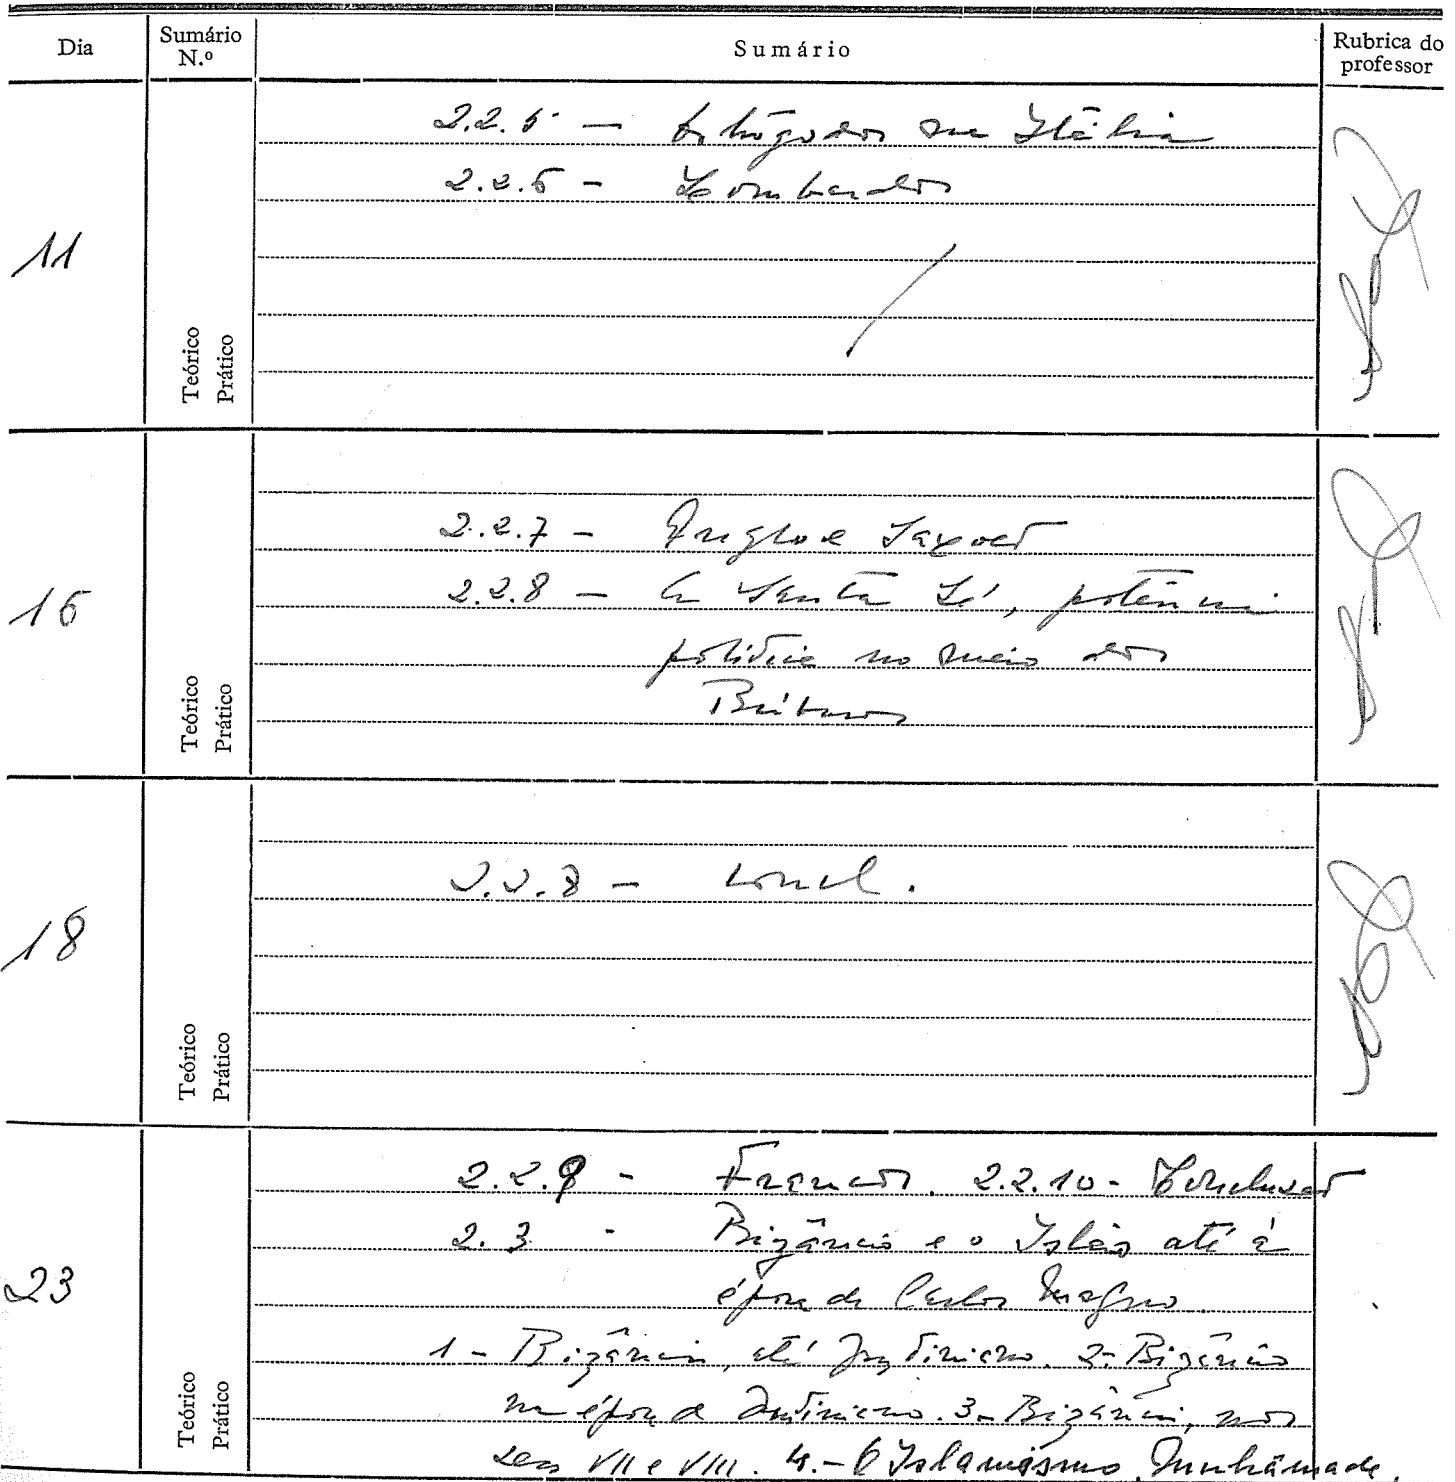 Dia
Sumário N.º
Sumário
Rubrica do professor
11
Teórico
Prático
2.2.5 - Ostrogodos na Itália
2.2.6 - Lombardos
16
Teórico
Prático
2.2.7 - Anglo e Saxões
2.2.8 - A Santa Sé, potência
política no meio dos
Bárbaros
18
Teórico
Prático
2.2.8 - Concl.
23
Teórico
Prático
2.2.9 - Francos. 2.2.10 - Conclusão
2.3 - Bizâncio e o Islão até à
época de Carlos Magno.
1 - Bizâncio, até Justiniano. 2 - Bizâncio
na época de Justiniano. 3 - Bizâncio, nos
secs VII e VIII. 4. - O Islamismo.